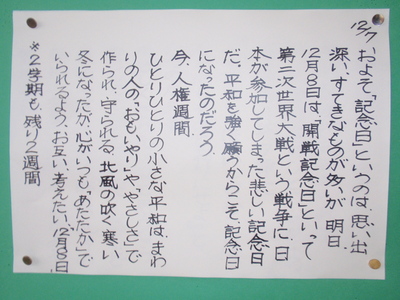 12/7
およそ「記念日」というのは、思い出
深い、すてきなものが多いが、明日、
12月8日は「開戦記念日」といって
第二次世界大戦という戦争に、日
本が参加してしまった悲しい記念日
だ。平和を強く願うからこそ、記念日
になったのだろう。
今、人権週間。
ひとりひとりの小さな平和は、まわ
りの人の「おもいやり」や「やさしさ」で
作られ、守られる。北風の吹く寒い
冬になったが、心がいつも「あたたか」で
いられるよう、お互い考えたい、12月8日
※2学期も、残り2週間